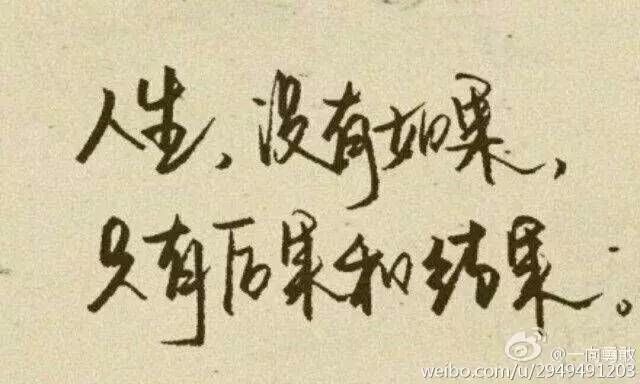 人生,没有如果,
只有后果和结果。
@一向勇敢
weibo.com/u/2949491203